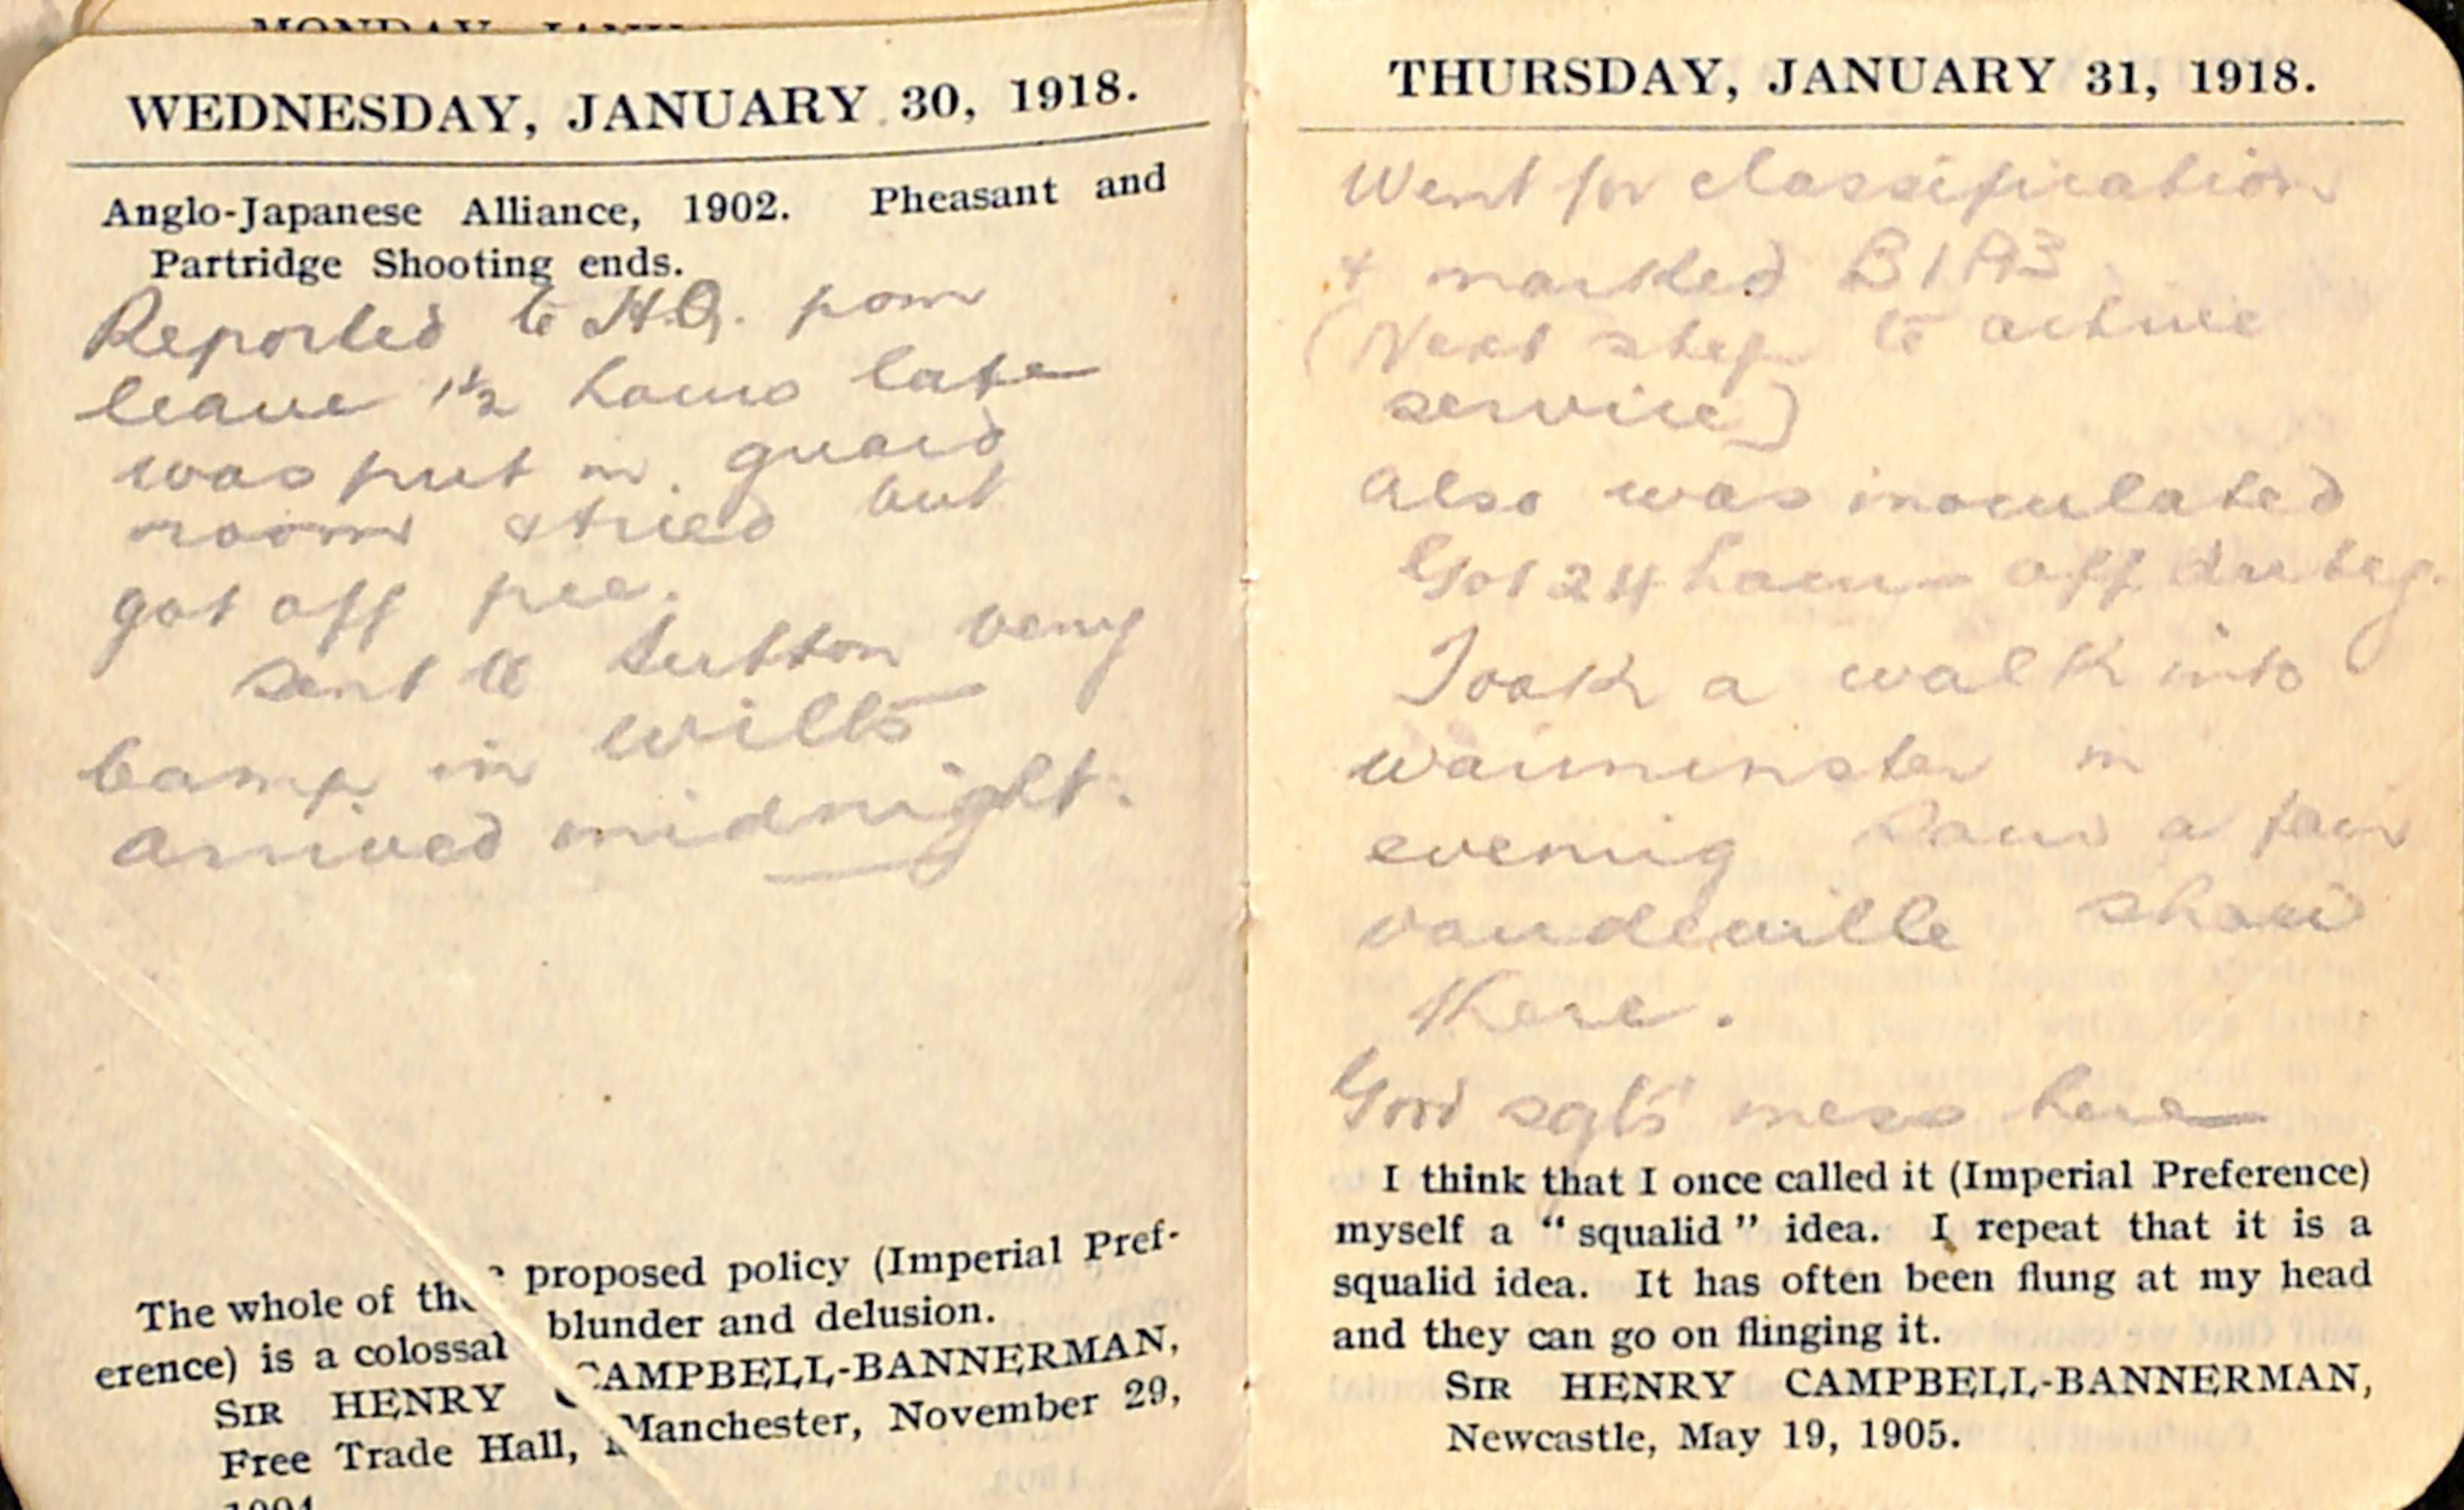 MONDAY, JANU
WEDNESDAY, JANUARY 30, 1918.
Anglo-Japanese Alliance, 1902. Pheasant and
Partridge Shooting ends.
Reported to H.Q. from
leave 1½ hours late
was put in guard
room & tried but
got off free.
Sent to Sutton Veny
Camp in Wilts
arrived midnight.
The whole of the proposed policy (Imperial Pref-
erence) is a colossal blunder and delusion.
SIR HENRY CAMPBELL-BANNERMAN,
Free Trade Hall, Manchester, November 29,
THURSDAY, JANUARY 31, 1918.
Went for classification
& marked B1A3
(Next step to active
service)
Also was inoculated
Got 24 hours off duty.
Took a walk into
Warminster in
evening Saw a fair
vaudeville show
there.
Good sgts' mess here
I think that I once called it (Imperial Preference)
myself a “squalid” idea. I repeat that it is a
squalid idea. It has often been flung at my head
and they can go on flinging it.
SIR HENRY CAMPBELL-BANNERMAN,
Newcastle, May 19, 1905.